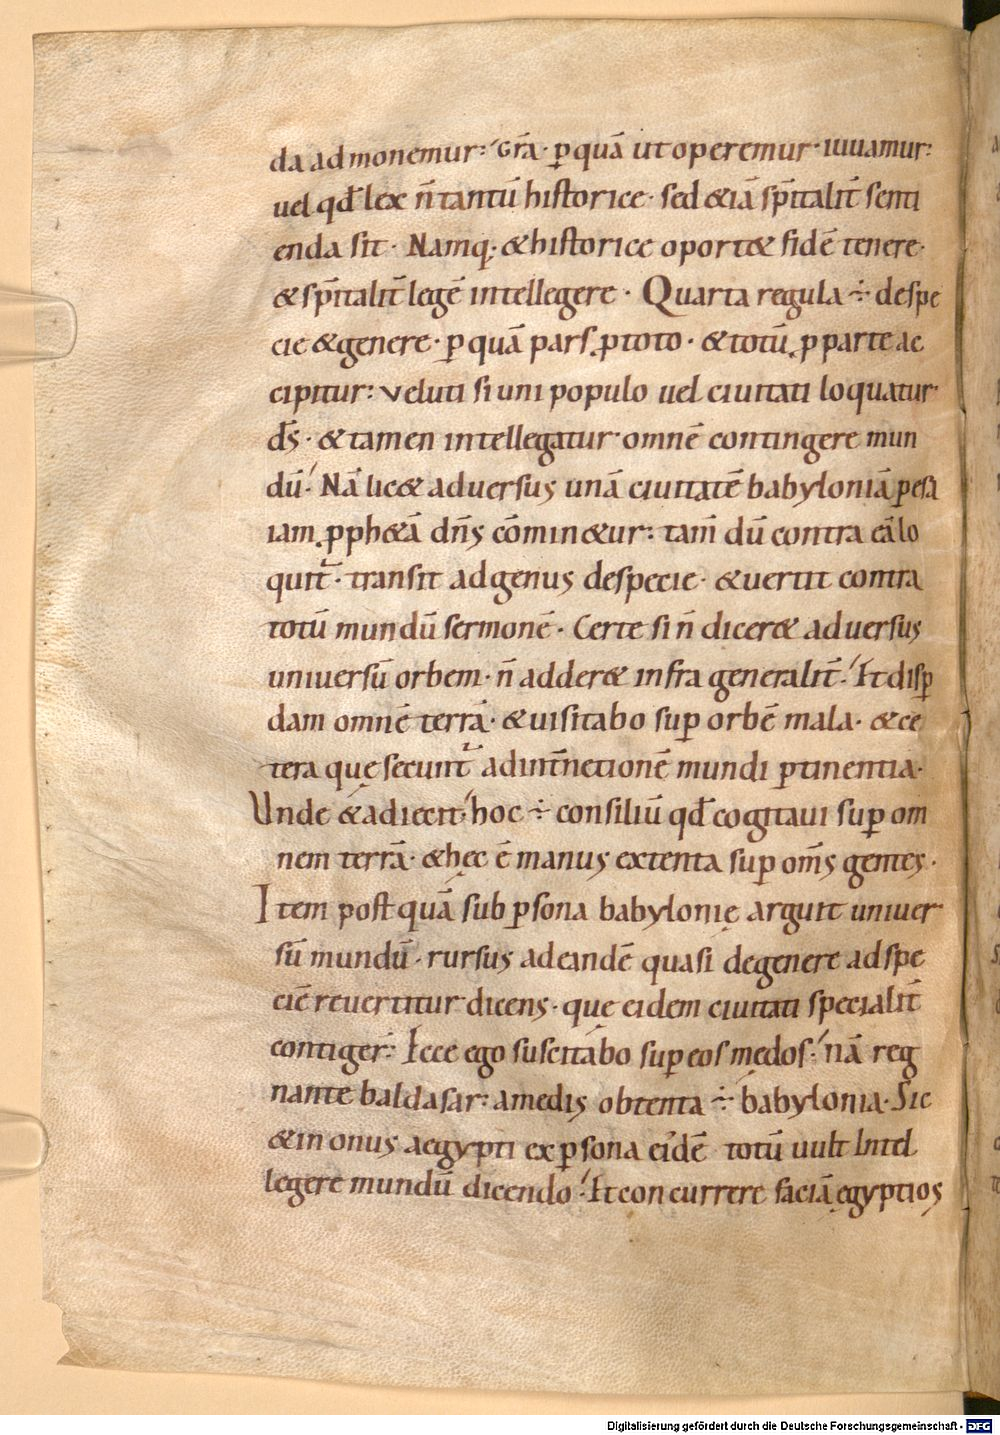 da admonemur: Gr̄a· p̲ quā ut operemur· iuuamur:
uel qđ lex n̄ tantū historice· sed &iā sp̄italit̄ senti
enda sit· Namq;· & historice oport& fidē tenere·
& sp̄italit̄ legē intellegere· Quarta regula ÷ despe
cie & genere· p̲ quā pars p̲ toto· & totū p̲ parte ac
cipitur: Veluti si uni populo uel ciuitati loquatur·
d̄s· & tamen intellegatur omnē contingere mun
dū· Nā lic& aduersus unā ciuitatē babyloniā p̲ esa
iam p̲ph&ā dn̄s cōmin&ur: tam̄ dū contra eā lo
quit̄· transit ad genus despecie· & uertit contra
totū mundū sermonē· Certe si n̄ dicer& aduersus
uniuersū orbem· n̄ adder& infra generalit̄· Et disp̲
dam omnē terrā· & uisitabo sup̲ orbē mala· & ce
tera quę secunt̄ ad int̄netionē mundi p̲tinentia·
Unde & adiecit· hoc ÷ consiliū qđ cogitaui sup̲ om
nem terrā· & hęc ē manus extenta sup̲ om̄s gentes·
Item postquā sub p̲sona babylonię arguit uniuer
sū mundū· rursus ad eandē quasi degenere ad spe
ciē reuertitur dicens· quę eidem ciuitati specialit̄
contiger̄· Ecce ego suscitabo sup̲ eos medos· nā reg
nante baldasar: amedis obtenta ÷ babylonia· Sic
& in onus aegypti ex p̲sona eidē totū uult Intel
legere mundū dicendo· Et concurrere faciā egyptios
Digitalisierung gefördert durch die Deutsche Forschungsgemeinschaft - DFG